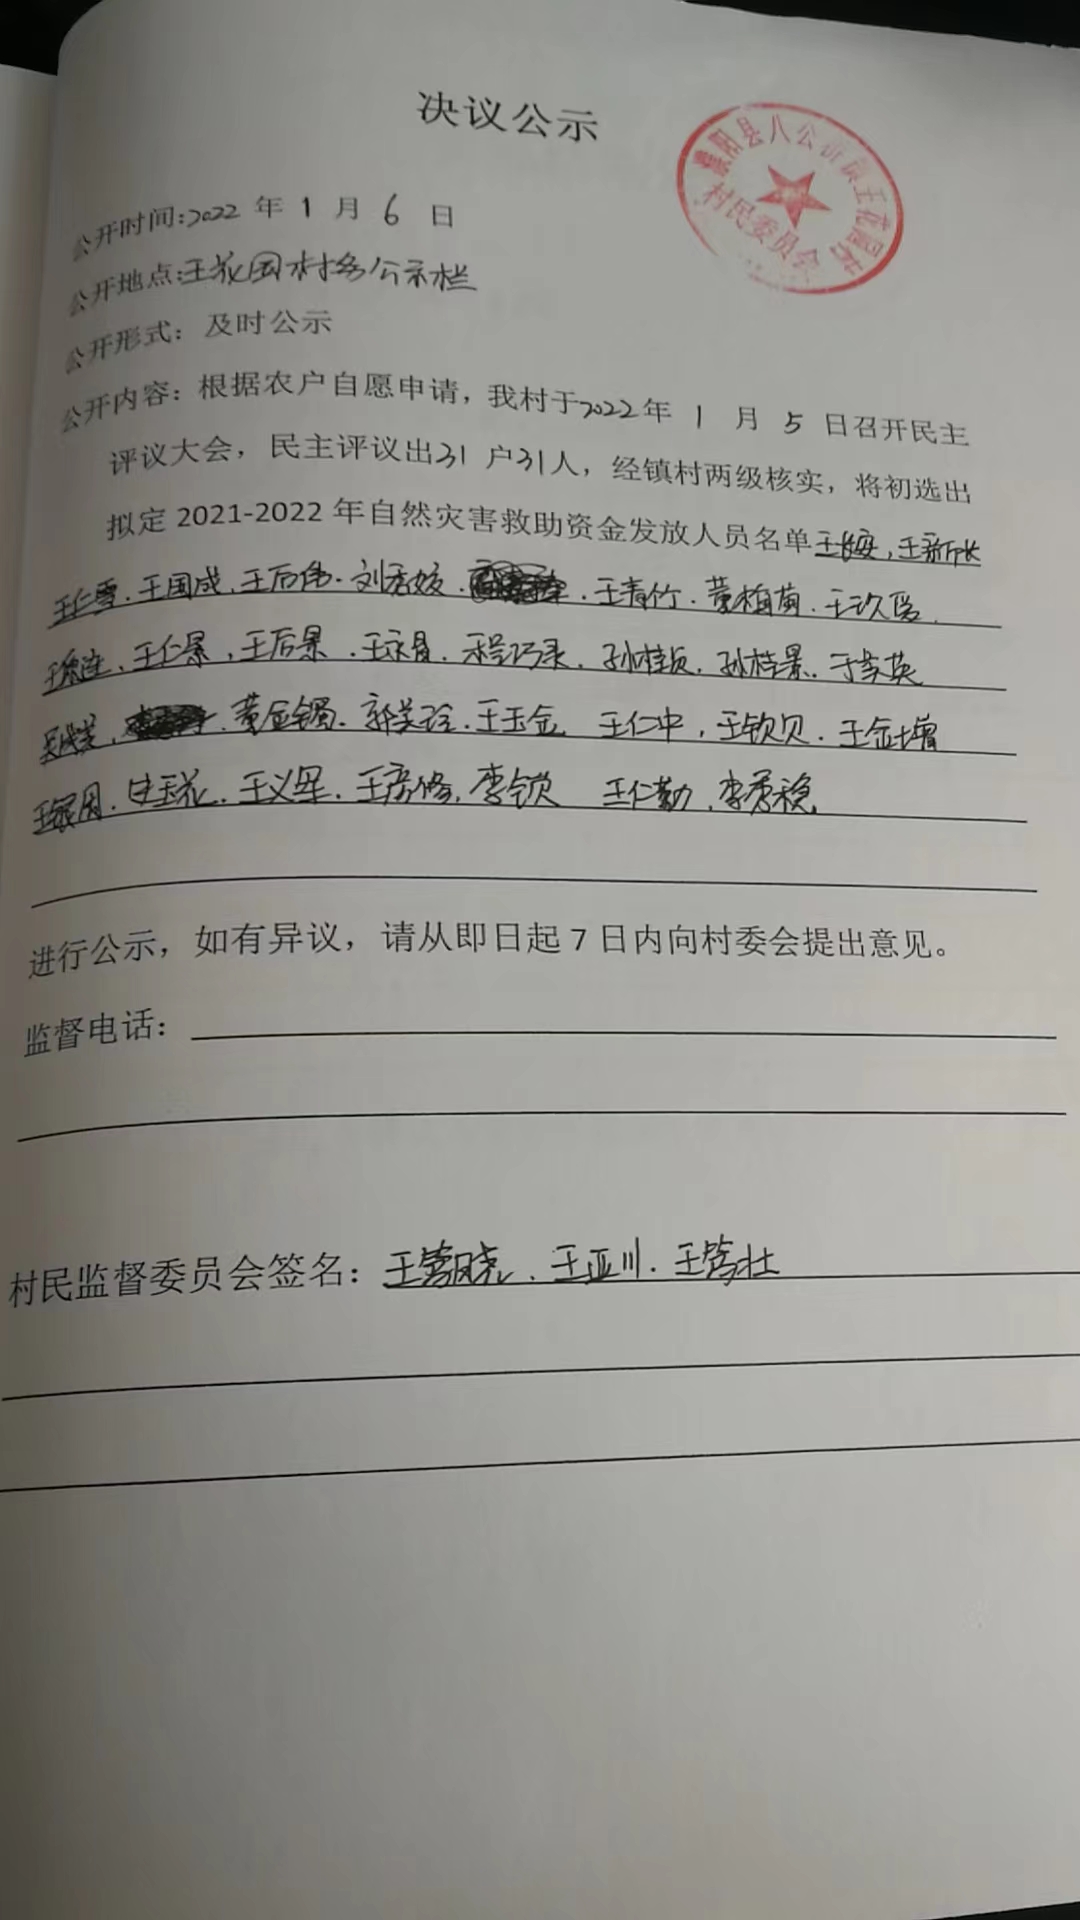 决议公示
襄阳县八公桥镇王花园村
村民委员会
公开时间:2022 年 1 月 6 日
公开地点:王花园村务公示栏
公开形式：及时公示
公开内容：根据农户自愿申请，我村于2022年 1 月 5 日召开民主
评议大会，民主评议出31 户31人，经镇村两级核实，将初选出
拟定 2021-2022 年自然灾害救助资金发放人员名单王长安，王新长
王仁雪．王国成．王后伟．刘秀姣．王青竹．黄梅菊．王
王仁景，王后景．程巧录．孙桂贞．孙桂景．于孝英
黄金镯．郭美玲．王玉金 王仁中，王钦贝．王金增
王银周．王义军．王彦修．李锁 王仁勤．李秀稳
进行公示，如有异议，请从即日起 7 日内向村委会提出意见。
监督电话：
村民监督委员会签名：王莺晓．王亚川．王莺壮